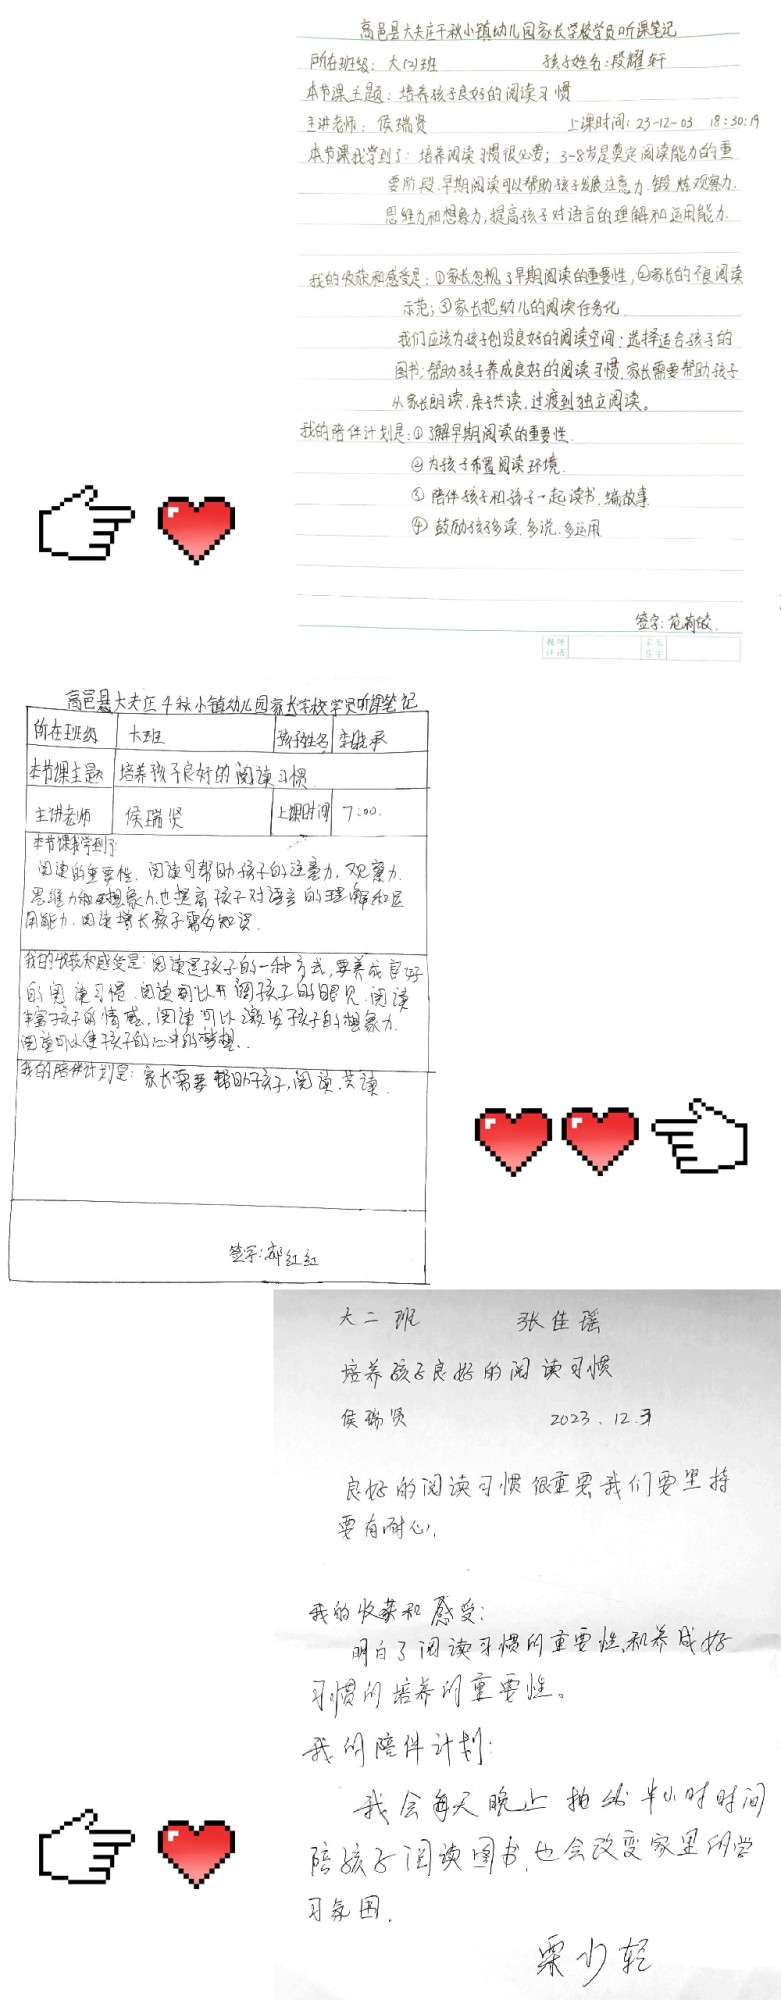 高邑县大夫庄千秋小镇幼儿园家长学校学员听课笔记
所在班级：大(2)班 孩子姓名：段耀轩
本节课主题：培养孩子良好的阅读习惯
主讲老师：侯瑞贤 上课时间：23-12-03 18:30:19
本节课我学到了：培养阅读习惯很必要；3-8岁是奠定阅读能力的重
要阶段.早期阅读可以帮助孩子发展注意力.锻炼观察力.
思维力和想象力,提高孩子对语言的理解和运用能力.
我的收获和感受是：①家长忽视了早期阅读的重要性,②家长的不良阅读
示范；③家长把幼儿的阅读任务化.
我们应该为孩子创设良好的阅读空间；选择适合孩子的
图书；帮助孩子养成良好的阅读习惯.家长需要帮助孩子
从家长朗读.亲子共读.过渡到独立阅读。
我的陪伴计划是：①了解早期阅读的重要性.
②为孩子布置阅读环境.
③陪伴孩子和孩子一起读书.编故事
④鼓励孩子多读.多说.多运用
签字：范荷皎.
教师评语 家长签字
高邑县大夫庄千秋小镇幼儿园家长学校学员听课笔记
所在班级 大班 孩子姓名
本节课主题 培养孩子良好的阅读习惯
主讲老师 侯瑞贤 上课时间 7:00.
本节课我学到了：
阅读的重要性.阅读可帮助孩子的注意力,观察力.
思维力和想象力.也提高孩子对语言的理解和运
用能力.阅读增长孩子需多知识.
我的收获和感受是：阅读是孩子的一种方式,要养成良好
的阅读习惯.阅读可以开阔孩子的眼见.阅读
丰富孩子的情感.阅读可以激发孩子的想象力.
阅读可以使孩子的心中的梦想..
我的陪伴计划是：家长需要帮助孩子,阅读.共读.
签字：郝红红
大二班 张佳瑶
培养孩子良好的阅读习惯
侯瑞贤 2023.12.3
良好的阅读习惯很重要我们要坚持
要有耐心.
我的收获和感受：
明白了阅读习惯的重要性,和养成好
习惯的培养的重要性。
我的陪伴计划：
我会每天晚上抽出半小时时间
陪孩子阅读图书.也会改变家里的学
习氛围.
栗少轻